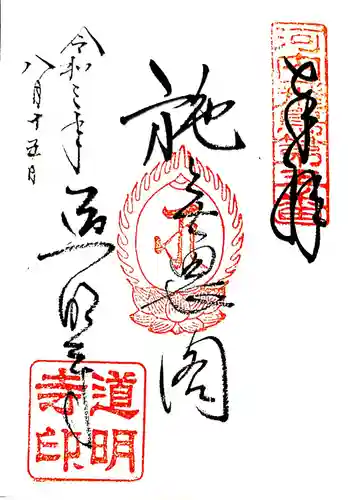 奉拝
施無畏閣
道明寺
令和三年
八月十五日
道明
寺印